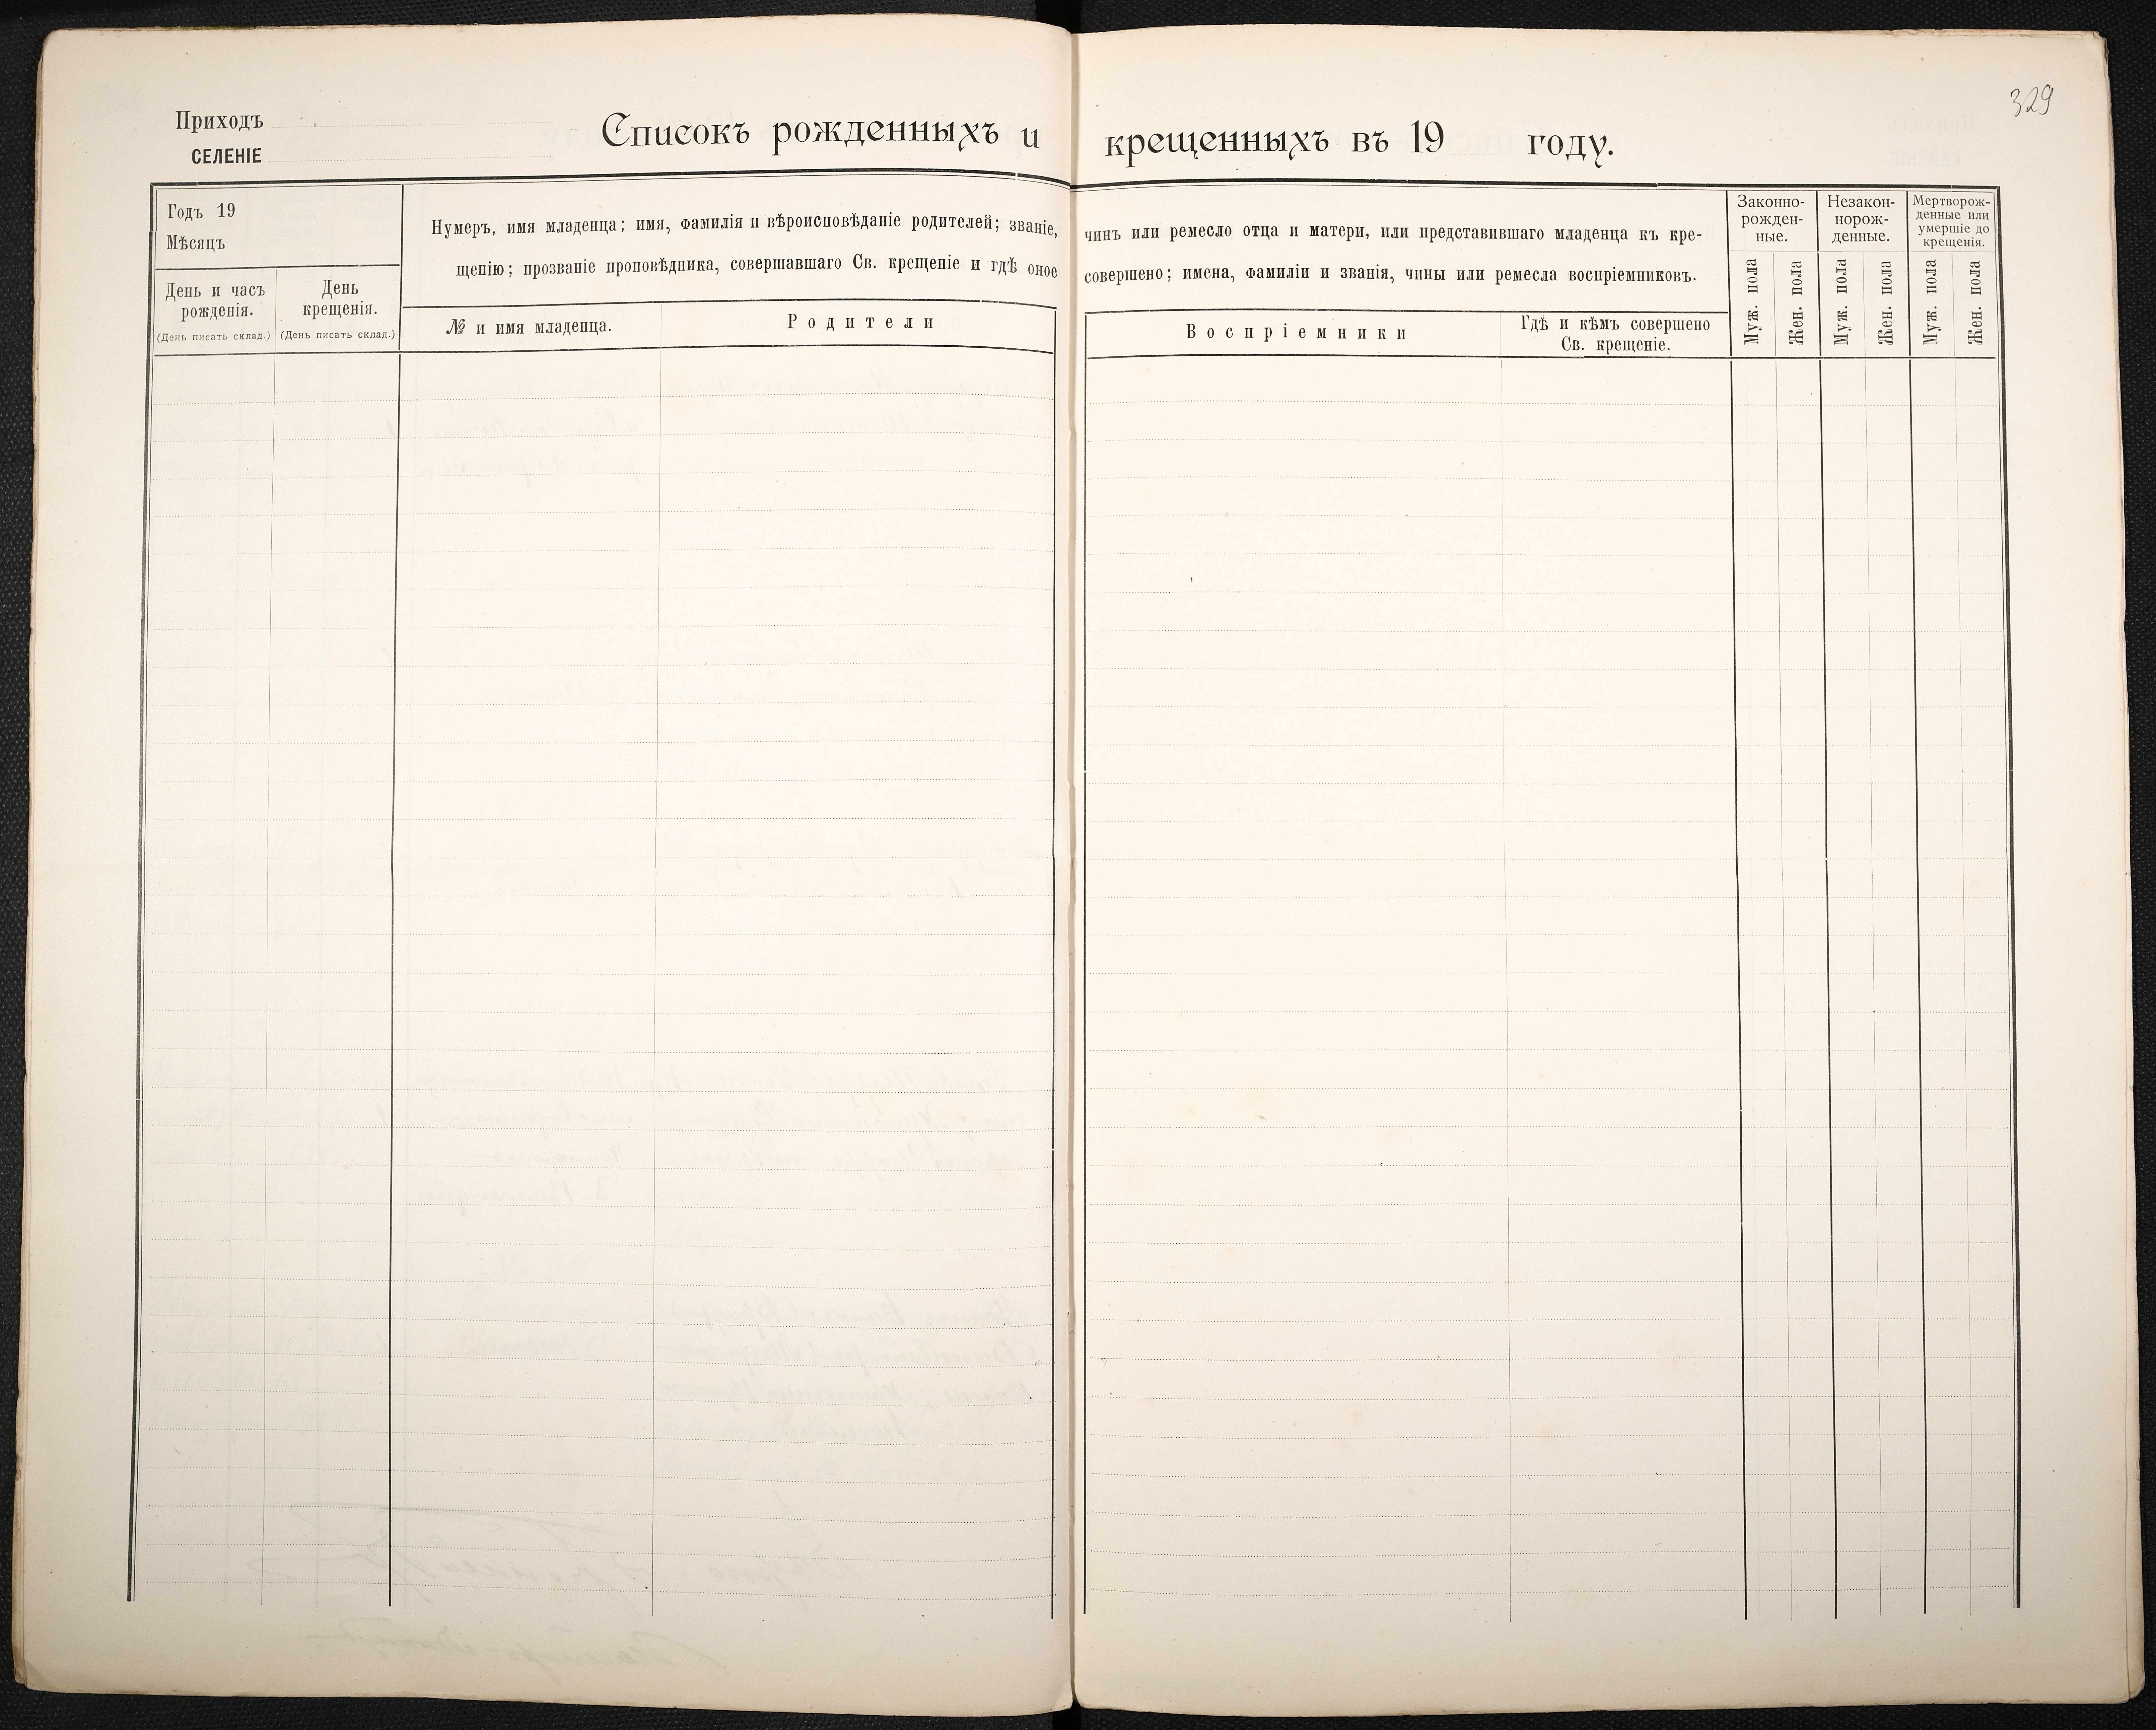 329
Приходъ
СЕЛЕНІЕ
Списокъ рожденныхъ и крещенныхъ въ 19 году.
Годъ 19
Мѣсяцъ
День и часъ
рожденія.
(День писать склад.)
День
крещенія.
(День писать склад.)
Нумеръ, имя младенца; имя, фамилія и вѣроисповѣданіе родителей; званіе, чинъ или ремесло отца и матери, или представившаго младенца къ кре-
щенію; прозваніе проповѣдника, совершавшаго Св. крещеніе и гдѣ оное совершено; имена, фамиліи и званія, чины или ремесла воспріемниковъ.
№ и имя младенца.
Родители
Воспріемники
Гдѣ и кѣмъ совершено
Св. крещеніе.
Законно-
рожден-
ные.
Муж. пола
Жен. пола
Незакон-
норож-
денные.
Муж. пола
Жен. пола
Мертворож-
денные или
умершіе до
крещенія.
Муж. пола
Жен. пола